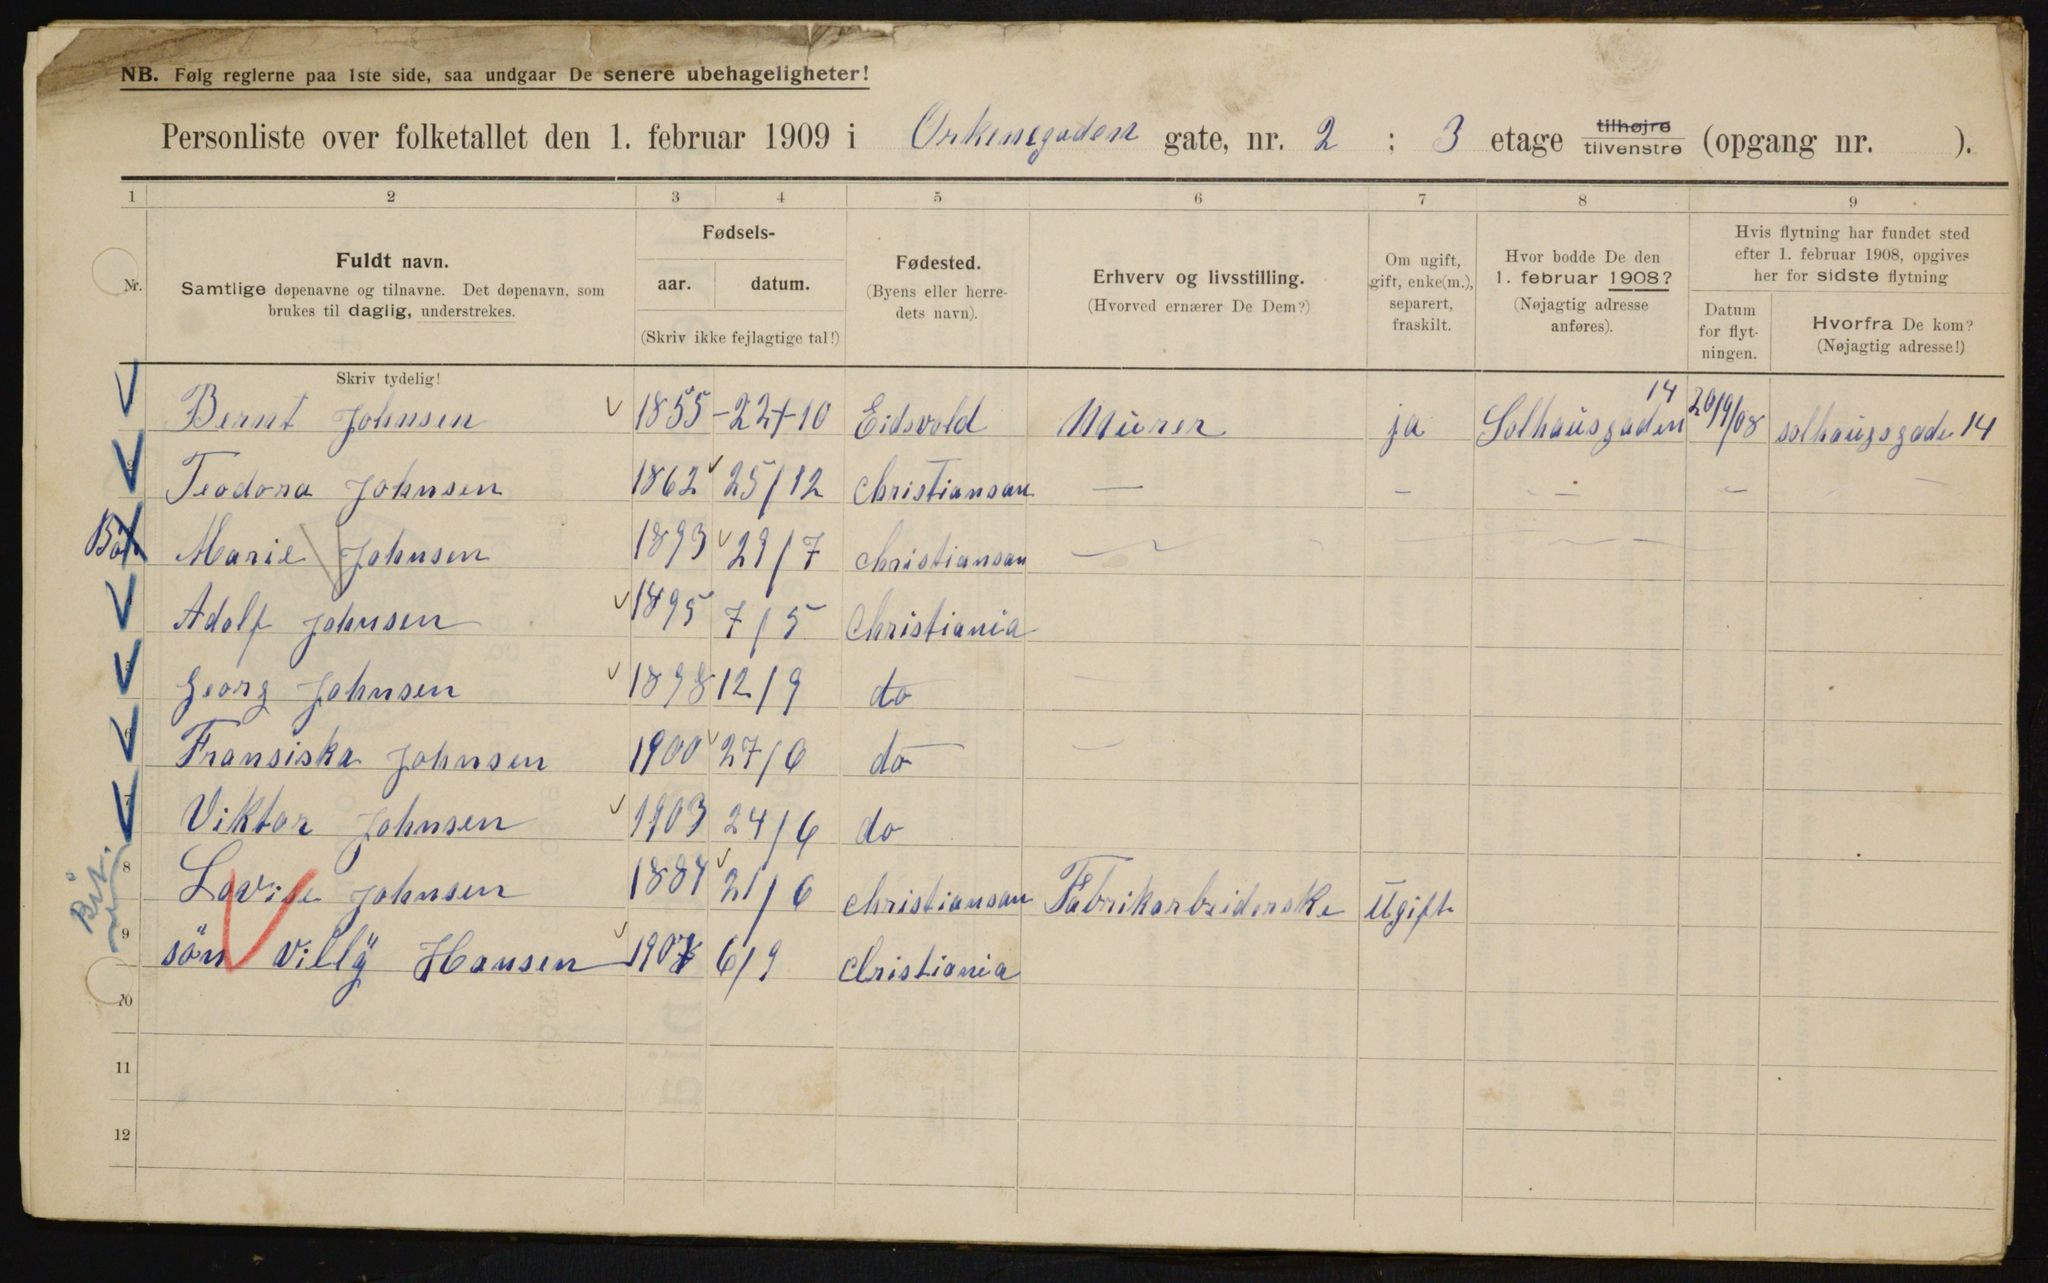 NB. Følg reglerne paa 1ste side, saa undgaar De senere ubehageligheter!
Personliste over folketallet den 1. februar 1909 i Orknegaden gate, nr. 2 ; 3 etage tilhøjre tilvenstre (opgang nr. ).
1 2 3 4 5 6 7 8 9
Nr.
Fuldt navn.
Samtlige døpenavne og tilnavne. Det døpenavn, som
brukes til daglig, understrekes.
Skriv tydelig!
Fødsels-
aar. datum.
(Skriv ikke fejlagtige tal!)
Fødested.
(Byens eller herre-
dets navn).
Erhverv og livsstilling.
(Hvorved ernærer De Dem?)
Om ugift,
gift, enke(m.),
separert,
fraskilt.
Hvor bodde De den
1. februar 1908?
(Nøjagtig adresse
anføres).
Hvis flytning har fundet sted
efter 1. februar 1908, opgives
her for sidste flytning
Datum
for flyt-
ningen.
Hvorfra De kom?
(Nøjagtig adresse!)
Bernt Johnsen 1855 - 22/10 Eidsvold Murer ja Solhausgaden 14 26/9/08 solhaugsgade 14
2 Teodora Johnsen 1862 25/12 Christiansan — - - - - -
Marie Johnsen 1893 29/7 christiansan —
Adolf Johnsen 1895 7/5 Christiania
5 Georg Johnsen 1898 12/9 do
6 Fransiska Johnsen 1900 27/6 do
7 Viktor Johnsen 1903 24/6 do
8 Lovise Johnsen 1887 21/6 christiansan Fabrikarbeiderske Ugift
9 sön Villÿ Hansen 1907 6/9 christiania
10
11
12